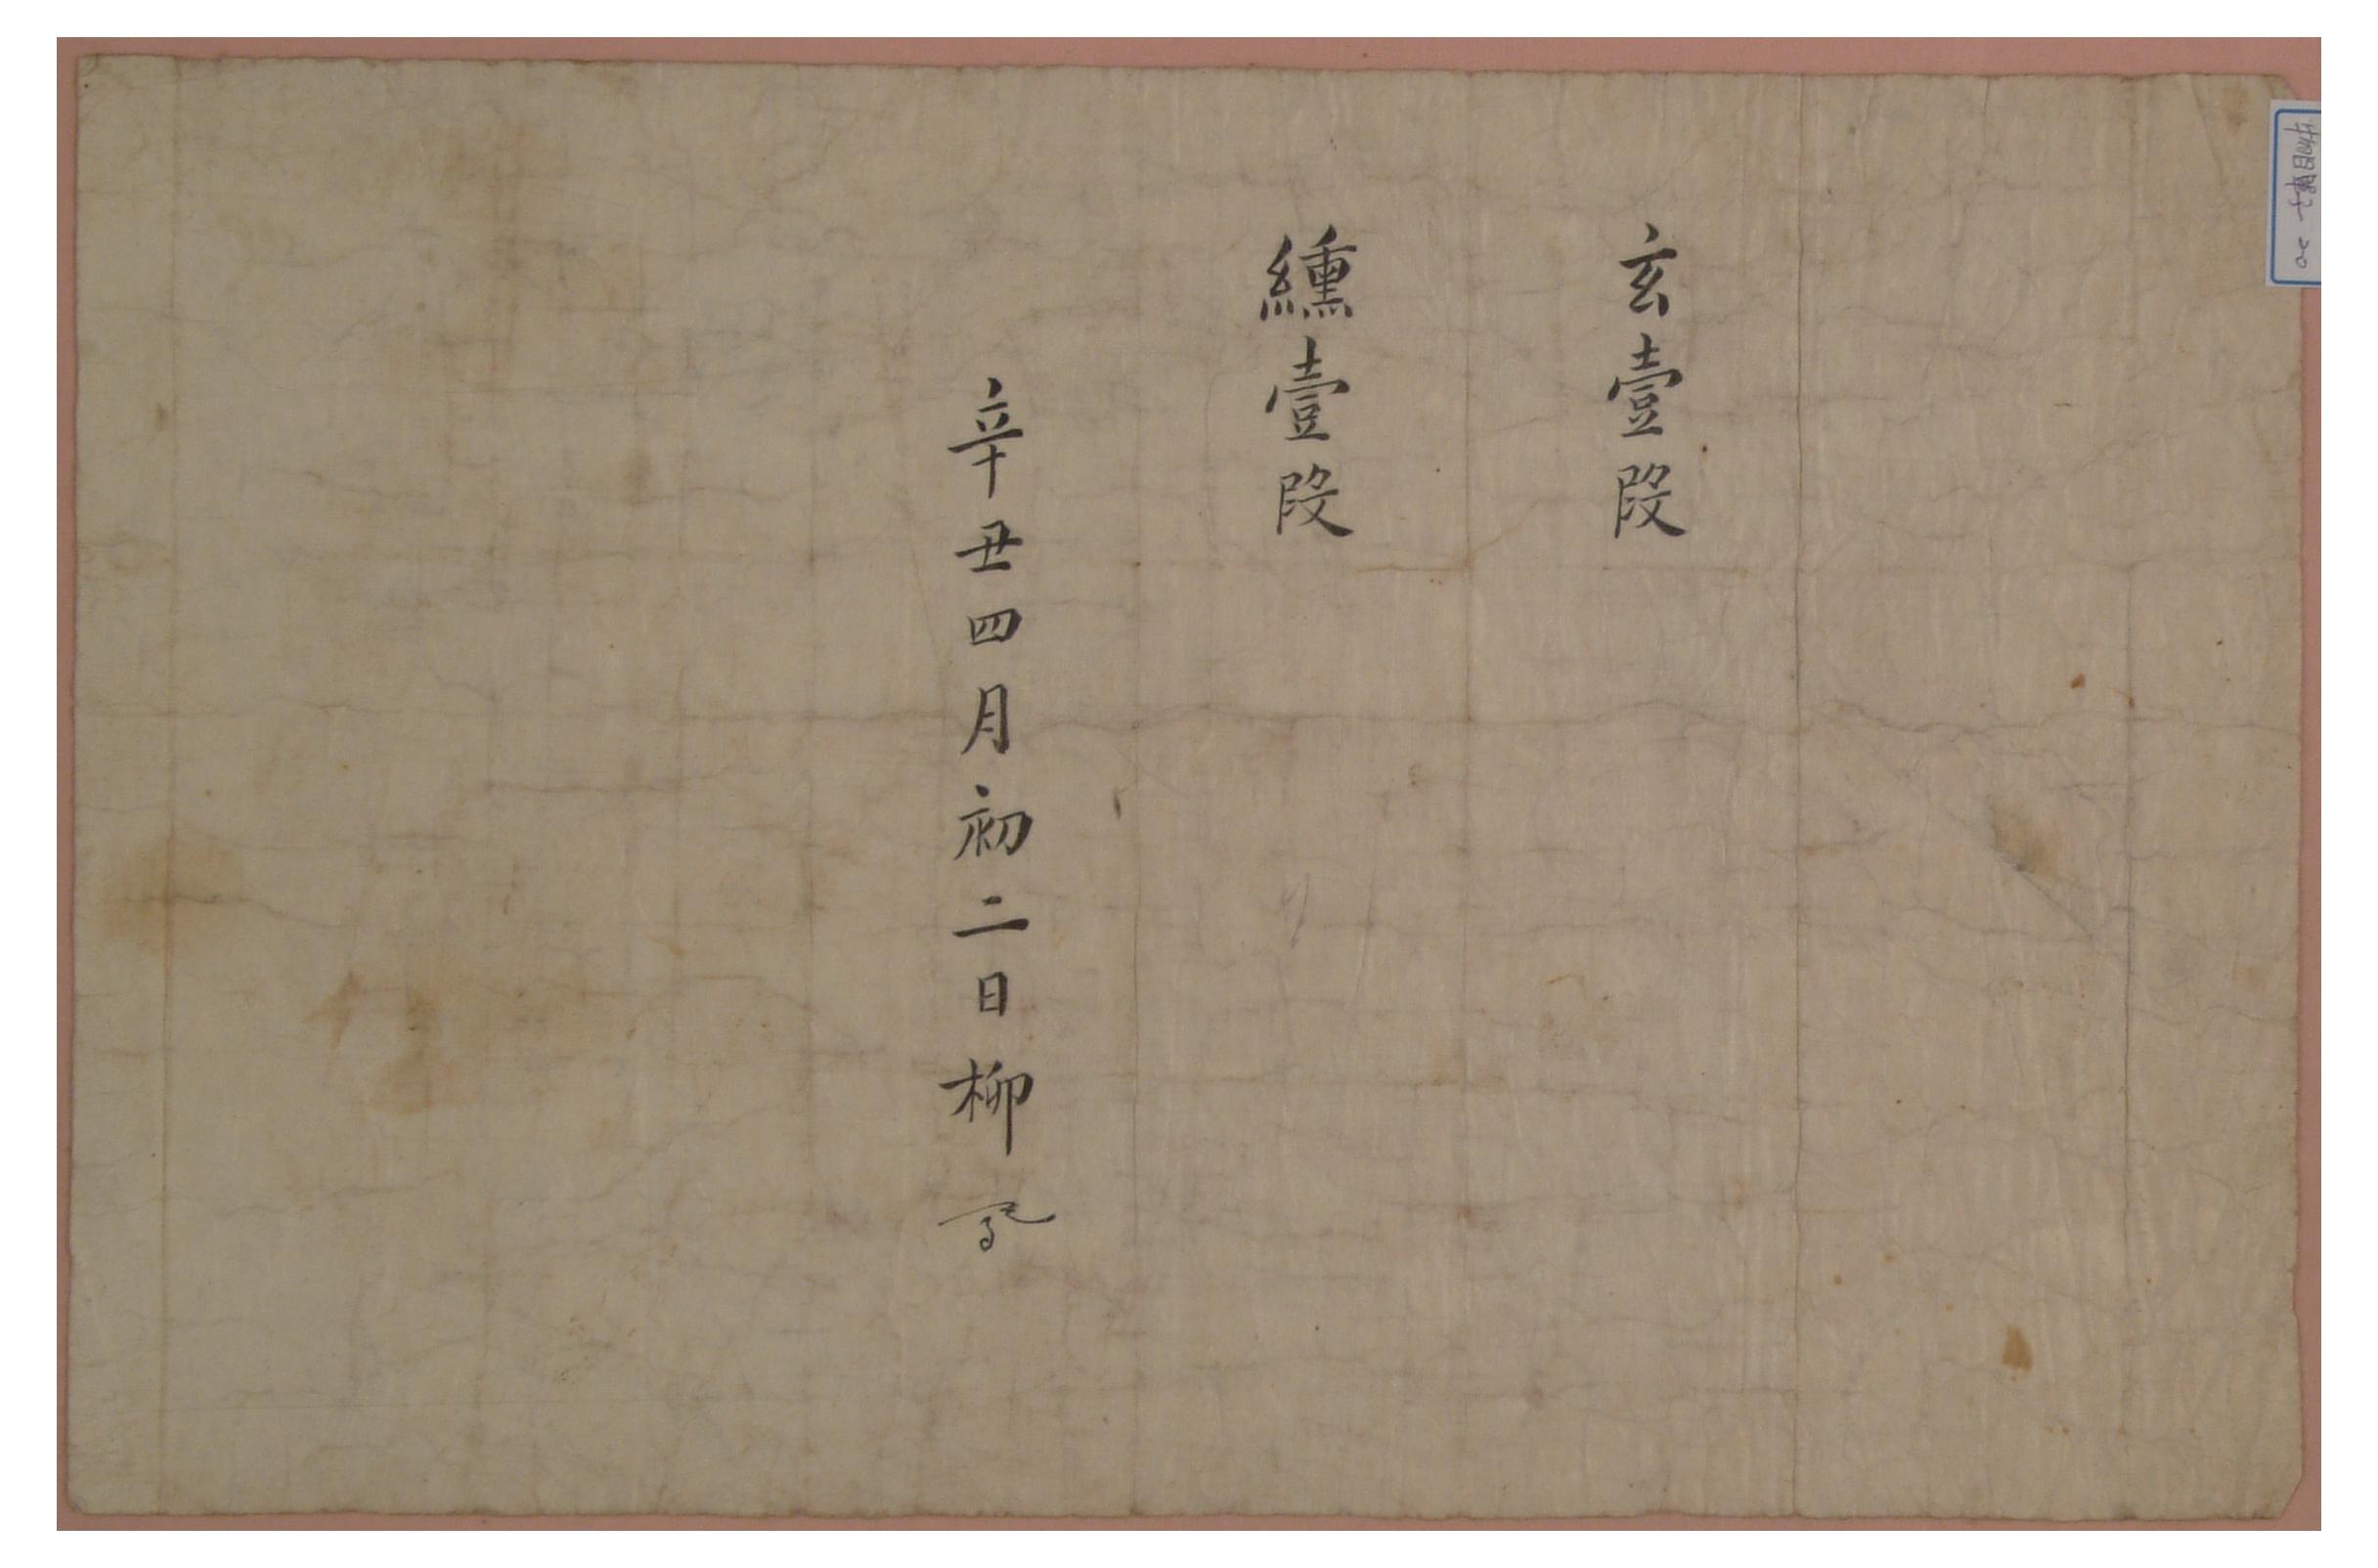 玄壹段
纁壹段
辛丑四月初二日柳
物目單子 20